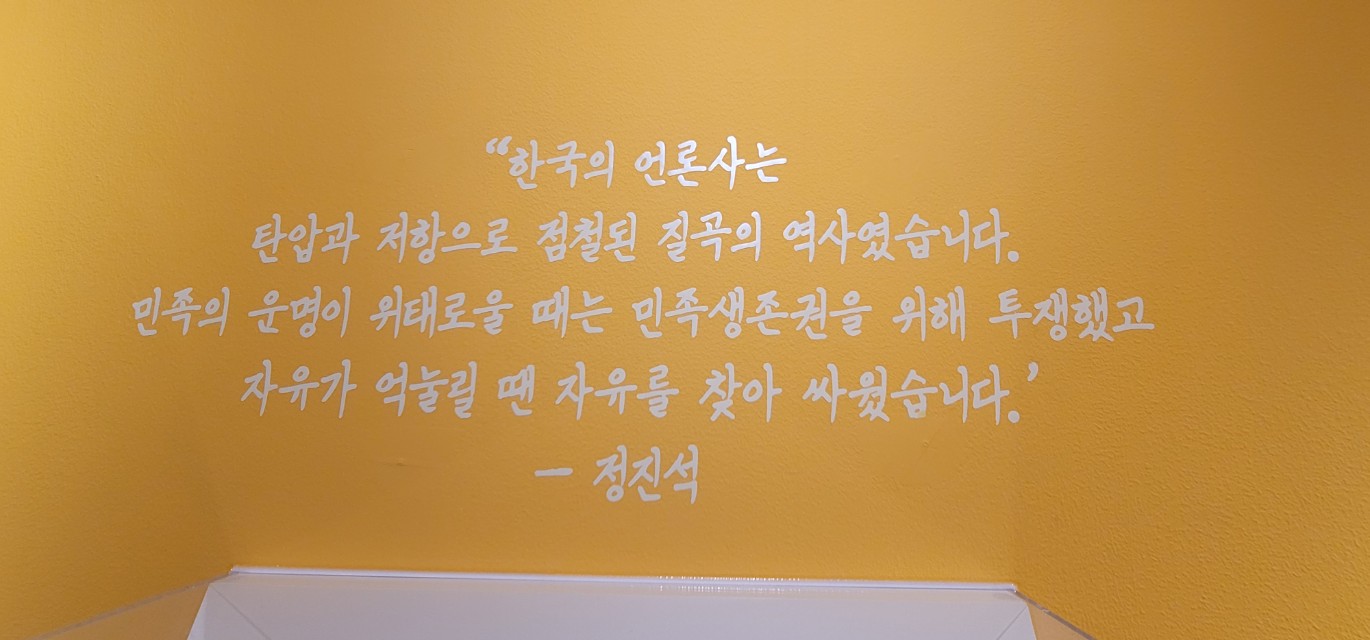 “한국의 언론사는
탄압과 저항으로 점철된 질곡의 역사였습니다.
민족의 운명이 위태로울 때는 민족생존권을 위해 투쟁했고
자유가 억눌릴 땐 자유를 찾아 싸웠습니다.’
- 정진석